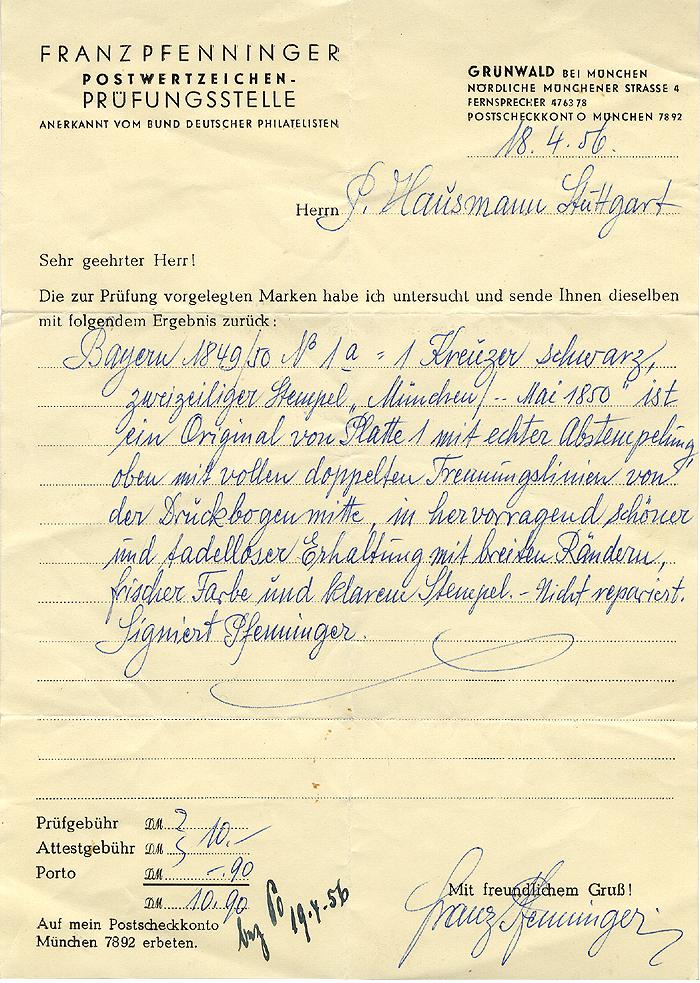 FRANZ PFENNINGER
POSTWERTZEICHEN-
PRÜFUNGSSTELLE
ANERKANNT VOM BUND DEUTSCHER PHILATELISTEN
GRÜNWALD BEI MÜNCHEN
NÖRDLICHE MÜNCHENER STRASSE 4
FERNSPRECHER 476378
POSTSCHECKKONTO MÜNCHEN 7892
18.4.56.
Herrn P. Hausmann Stuttgart
Sehr geehrter Herr!
Die zur Prüfung vorgelegten Marken habe ich untersucht und sende Ihnen dieselben
mit folgendem Ergebnis zurück:
Bayern 1849/50 № 1a = 1 Kreuzer schwarz,
zweizeiliger Stempel „München/-- Mai 1850" ist
ein Original von Platte 1 mit echter Abstempelung,
oben mit vollen doppelten Trennungslinien von
der Druckbogenmitte, in hervorragend schöner
und tadelloser Erhaltung mit breiten Rändern,
frischer Farbe und klarem Stempel. - Nicht repariert.
Signiert Pfenninger.
Prüfgebühr DM
Attestgebühr DM 10.-
Porto DM -.90
DM 10.90
Auf mein Postscheckkonto
München 7892 erbeten.
19.4.56
Mit freundlichem Gruß!
Franz Pfenninger